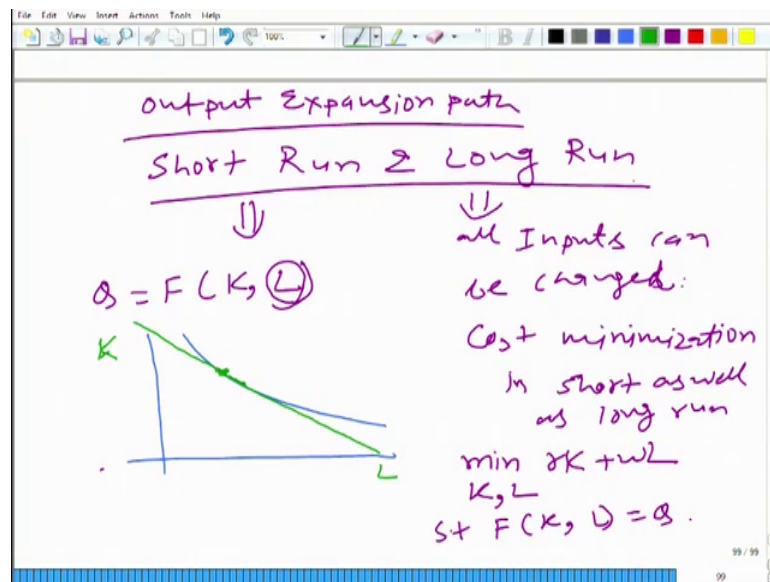 File Edit View Insert Actions Tools Help
100%
B I
Output Expansion path
Short Run & Long Run
Q = F (K, L)
K
L
all Inputs can
be changed.
Cost minimization
in short as well
as long run
min rK + wL
K, L
St F(K, L) = Q.
99 / 99
99